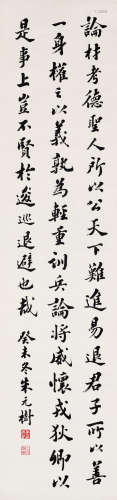 論材考德聖人所以公天下難進易退君子所以善
一身權之以義孰為輕重訓兵論將威懷戎狄卿以
是事上豈不賢於逡巡退避也哉 癸未冬朱元樹